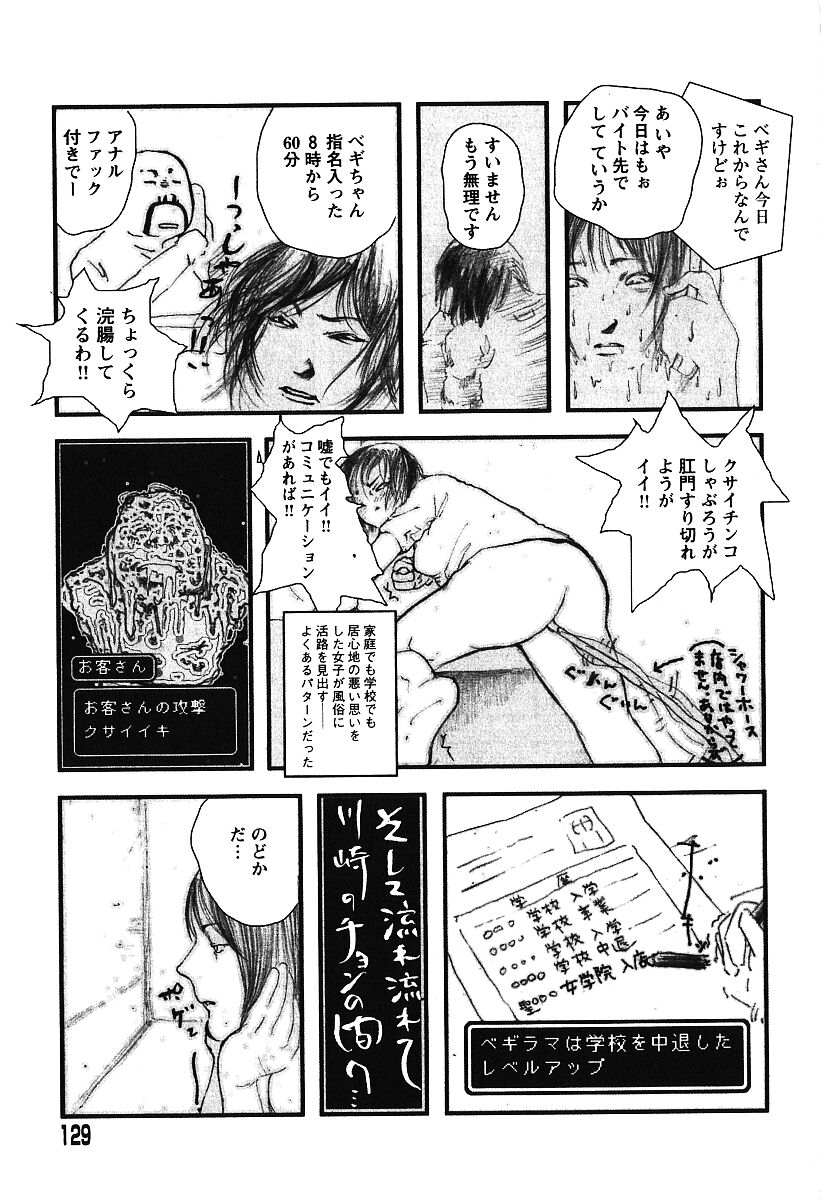 ベギさん今日
これからなんで
すけどぉ
あいや
今日はもぉ
バイト先で
してていうか
すいません
もう無理です
ベギちゃん
指名入った
8時から
60分
アナル
ファック
付きでー
ーつっしゃあ
ちょっくら
浣腸して
くるわ!!
クサイチンコ
しゃぶろうが
肛門すり切れ
ようが
イイ!!
嘘でもイイ!!
コミュニケーション
があれば!!
シャワーホース
ぐいんぐいん
家庭でも学校でも
居心地の悪い思いを
した女子が風俗に
活路を見出す――
よくあるパターンだった
お客さん
お客さんの攻撃
クサイイキ
学歴
○○○学校 入学
○○○学校 卒業
○○○○学校 入学
○○○○学校 中退
聖○○○女学院
ベギラマは学校を中退した
レベルアップ
そして流れ流れて
川崎のチョンの間へ…
のどか
だ…
ポゲ〜
129